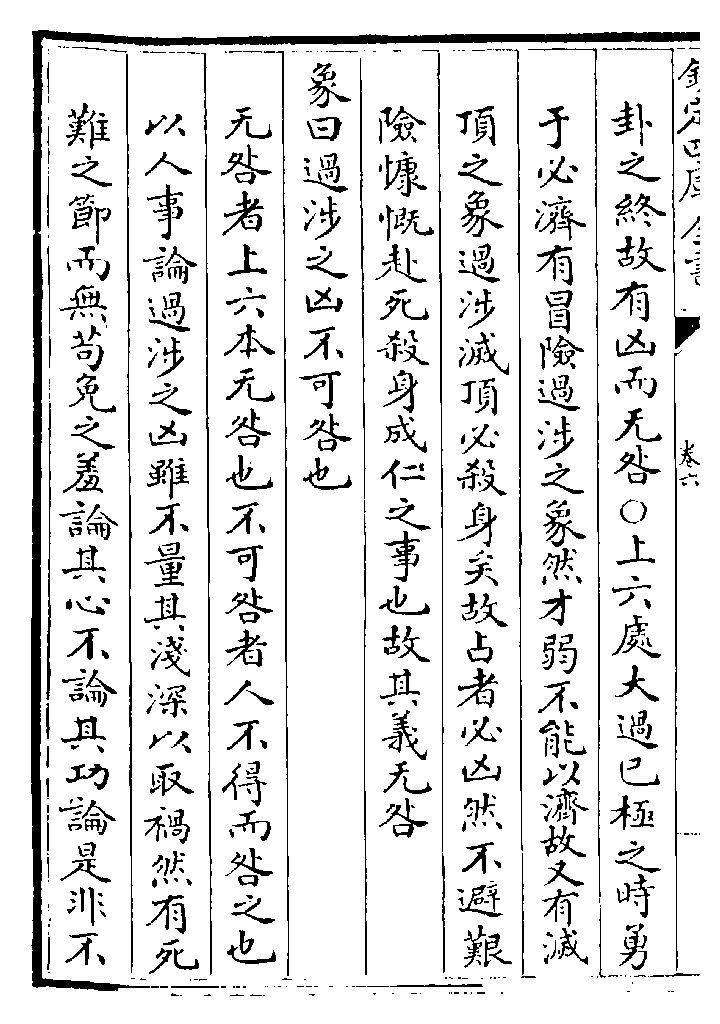 欽定四庫全書
卷六
卦之終故有凶而无咎○上六處大過已極之時勇
于必濟有冒險過涉之象然才弱不能以濟故又有滅
頂之象過涉滅頂必殺身矣故占者必凶然不避艱
險慷慨赴死殺身成仁之事也故其義无咎
象曰過涉之凶不可咎也
无咎者上六本无咎也不可咎者人不得而咎之也
以人事論過涉之凶雖不量其淺深以取禍然有死
難之節而無苟免之羞論其心不論其功論是非不